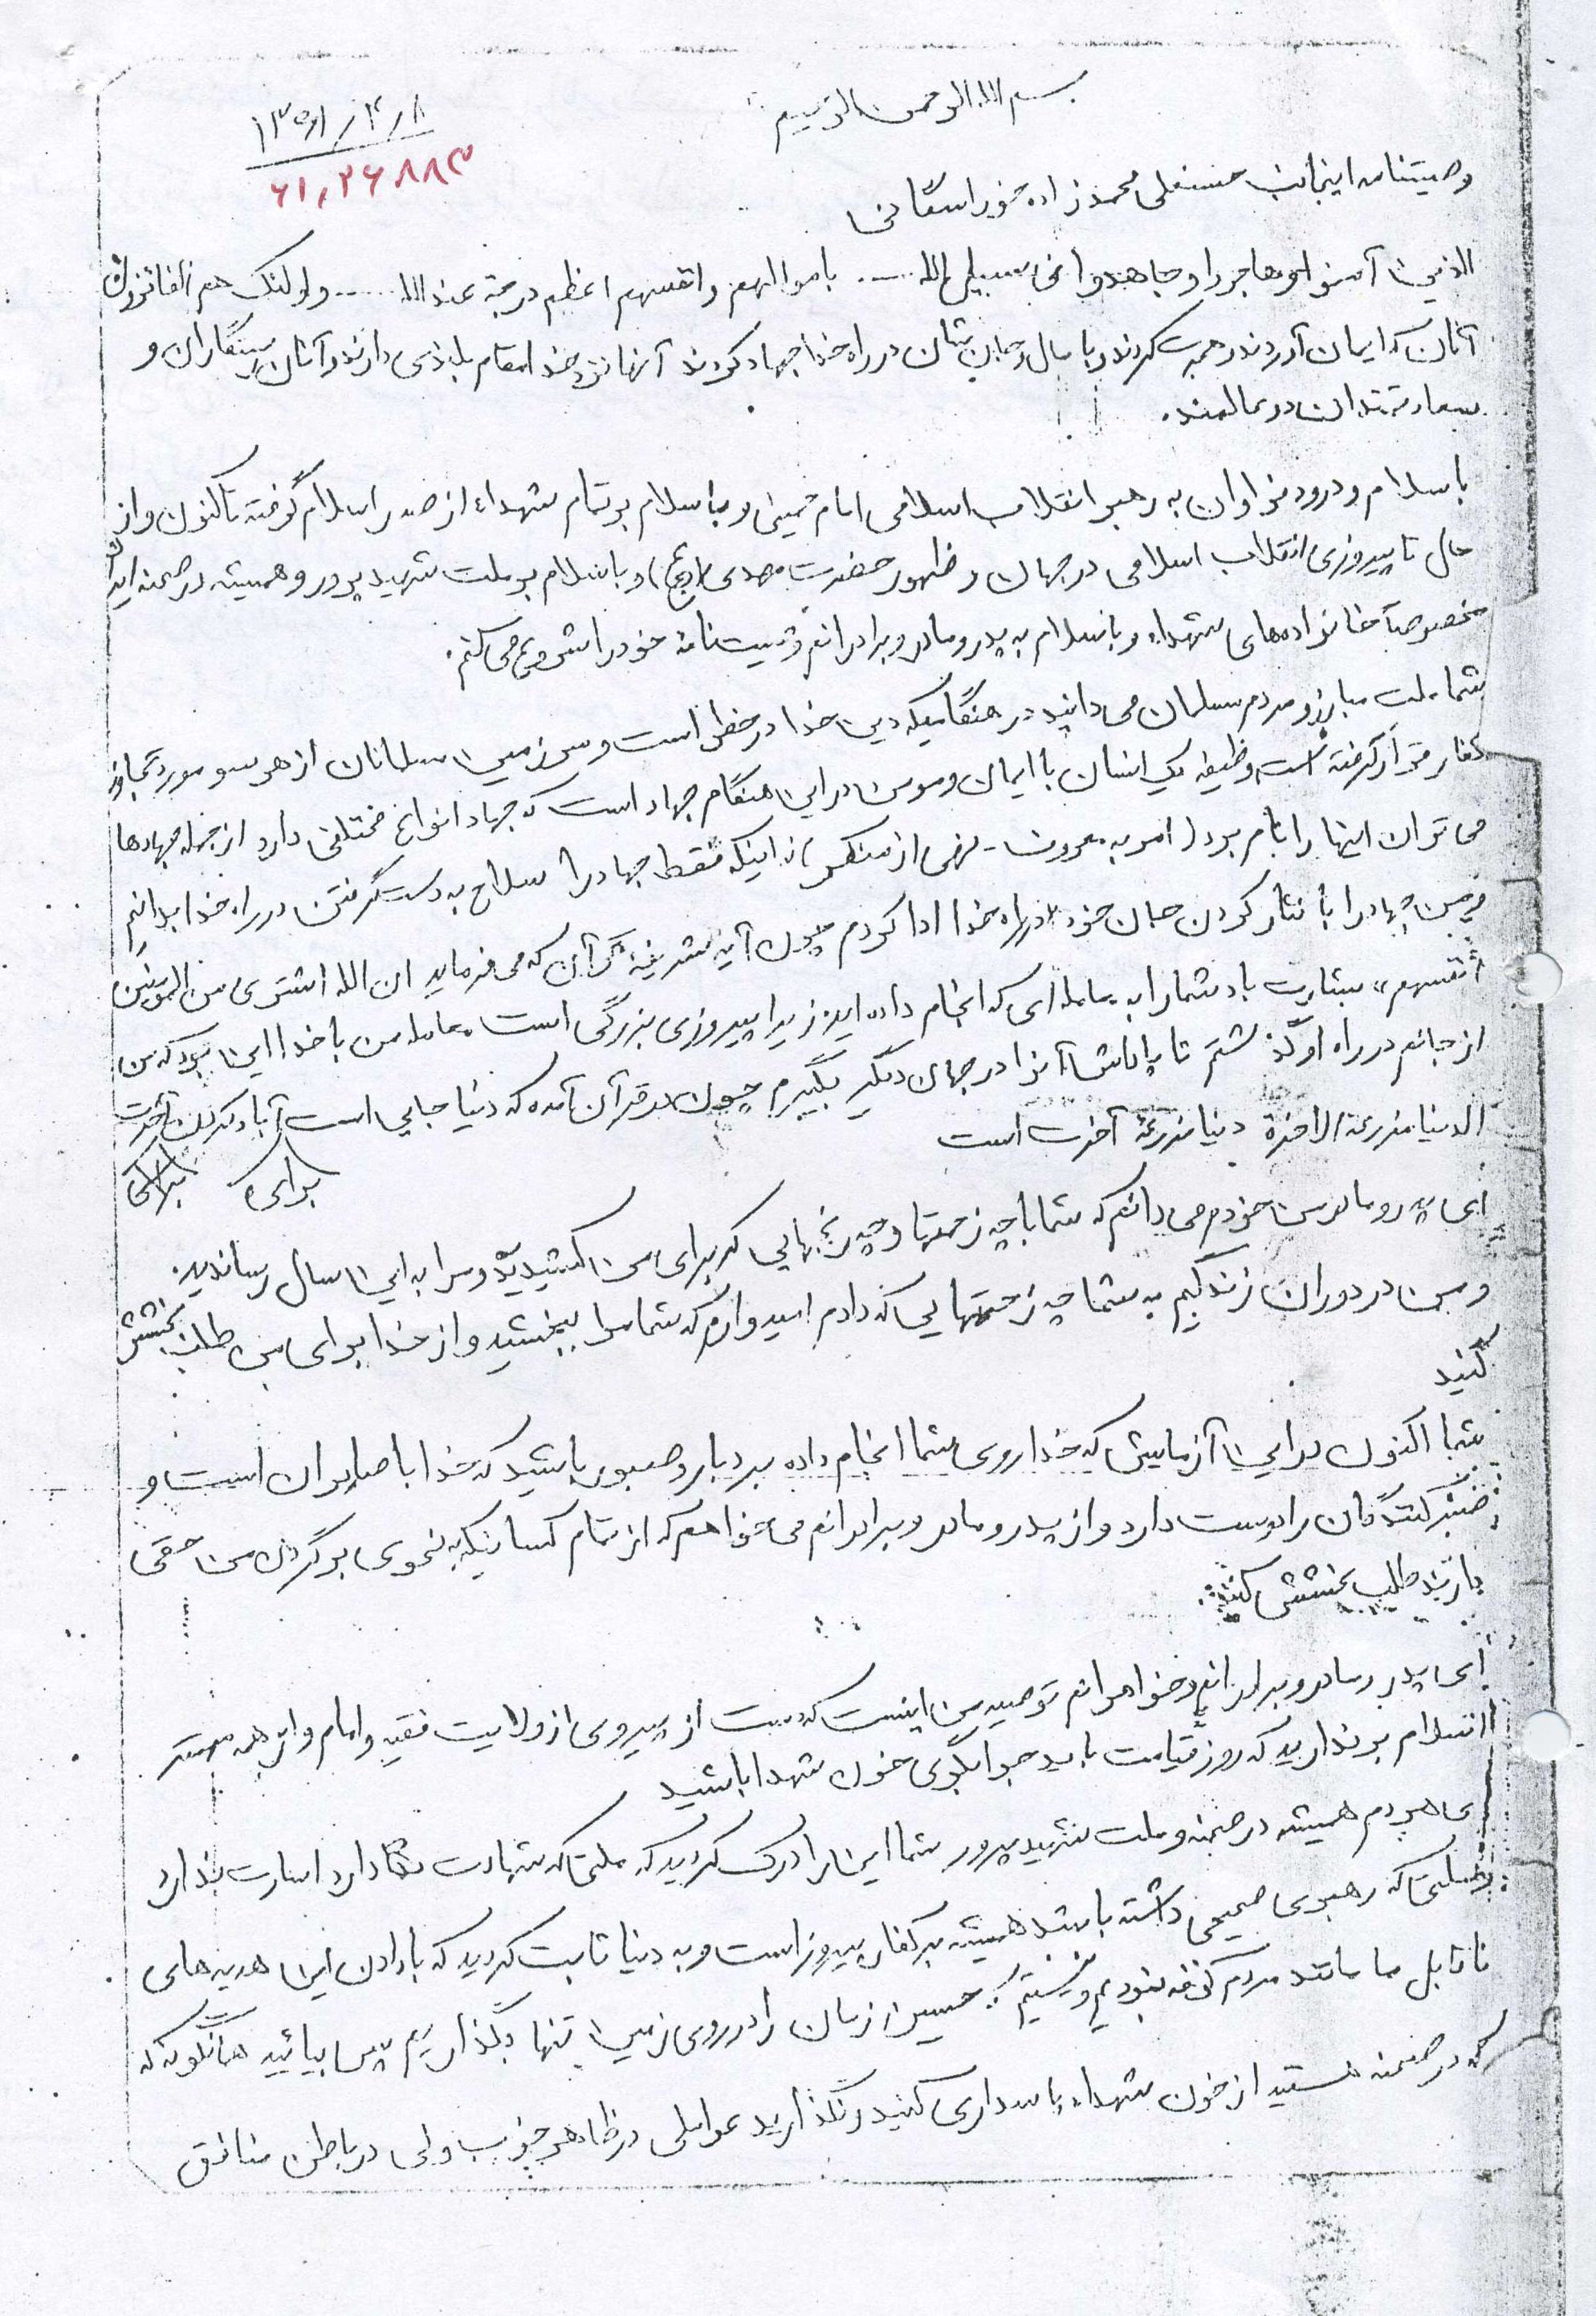 بسم الله الرحمن الرحیم
۱۳۶۱/۴/۸
۶۱,۲۶۸۸۳
وصیتنامه اینجانب حسنعلی محمدزاده خوراسگانی
الذین آمنو او هاجروا و جاهدوا فی سبیل الله ..... باموالهم و انفسهم اعظم درجة عندالله ..... و اولئک هم الفائزون
آنان که ایمان آوردند و هجرت کردند و با مال و جان شان در راه خدا جهاد کردند آنها نزد خدا مقام بلندی دارند و آنان رستگاران و
سعادتمندان در عالمند.
با سلام و درود فراوان به رهبر انقلاب اسلامی امام خمینی و با سلام بر تمام شهداء از صدر اسلام گرفته تا کنون و از
حال تا پیروزی انقلاب اسلامی در جهان و ظهور حضرت مهدی (عج) و با سلام بر ملت شهید پرور و همیشه در صحنه ایران
مخصوصاً خانواده‌های شهداء و با سلام به پدر و مادر و برادرانم وصیت نامه خود را شروع می کنم.
شما ملت مبارز و مردم مسلمان می دانید در هنگامیکه دین خدا در خطر است و سرزمین مسلمانان از هر سو مورد تجاوز
کفار قرار گرفته است وظیفه یک انسان با ایمان و مومن در این هنگام جهاد است که جهاد انواع مختلفی دارد از جمله جهادها
می توان اینها را نام برد (امر به معروف - نهی از منکر) نه اینکه فقط جهاد را سلاح به دست گرفتن در راه خدا بدانم
و من جهاد را با نثار کردن جان خود در راه خدا ادا کردم چون آیه شریفه قرآن که می فرماید ان الله اشتری من المومنین
انفسهم» بشارت باد شما را به معامله ای که انجام داده اید زیرا پیروزی بزرگی است معامله من با خدا این بود که من
از جانم در راه او گذشتم تا پاداش آنرا در جهان دیگر بگیرم چون در قرآن آمده که دنیا جایی است آباد کردن آخرت
الدنیا مزرعة الاخرة دنیا مزرعهٔ آخرت است
برای
ای پدر و مادر من خودم می دانم که شما با چه زحمتها و چه رنجهایی که برای من کشیدید و مرا به این سال رساندید.
و من در دوران زندگیم به شما چه زحمتهایی که دادم امیدوارم که شما مرا ببخشید و از خدا برای من طلب بخشش
کنید
شما اکنون در این آزمایش که خدا روی شما انجام داده بردبار و صبور باشید که خدا با صابران است و
صبر کنندگان را دوست دارد و از پدر و مادر و برادرانم می خواهم که از تمام کسانیکه به نحوی بر گردن من حقی
دارند طلب بخشش کنند.
ای پدر و مادر و برادرانم و خواهرانم توصیه من اینست که دست از پیروی از ولایت فقیه و امام و از همه مهمتر
اسلام بر ندارید که روز قیامت باید جوابگوی خون شهدا باشید
ای مردم همیشه در صحنه و ملت شهید پرور شما این را درک کردید که ملتی که شهادت دارد اسارت ندارد
و ملتی که رهبری صحیحی داشته باشد همیشه بر کفار پیروز است و به دنیا ثابت کردید که با دادن این هدیه های
ناقابل ما مانند مردم کوفه نبودیم و نیستیم که حسین زمان را در روی زمین تنها بگذاریم پس بیائید همانگونه که
که در صحنه هستید از خون شهداء پاسداری کنید و نگذارید عواملی در ظاهر خوب ولی در باطن منافق